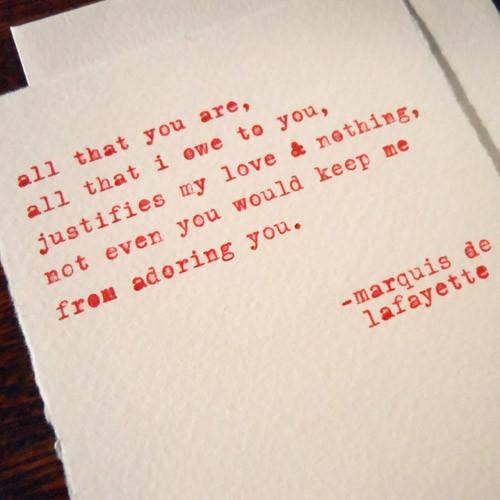 all that you are,
all that i owe to you,
justifies my love & nothing,
not even you would keep me
from adoring you.
-marquis de
lafayette